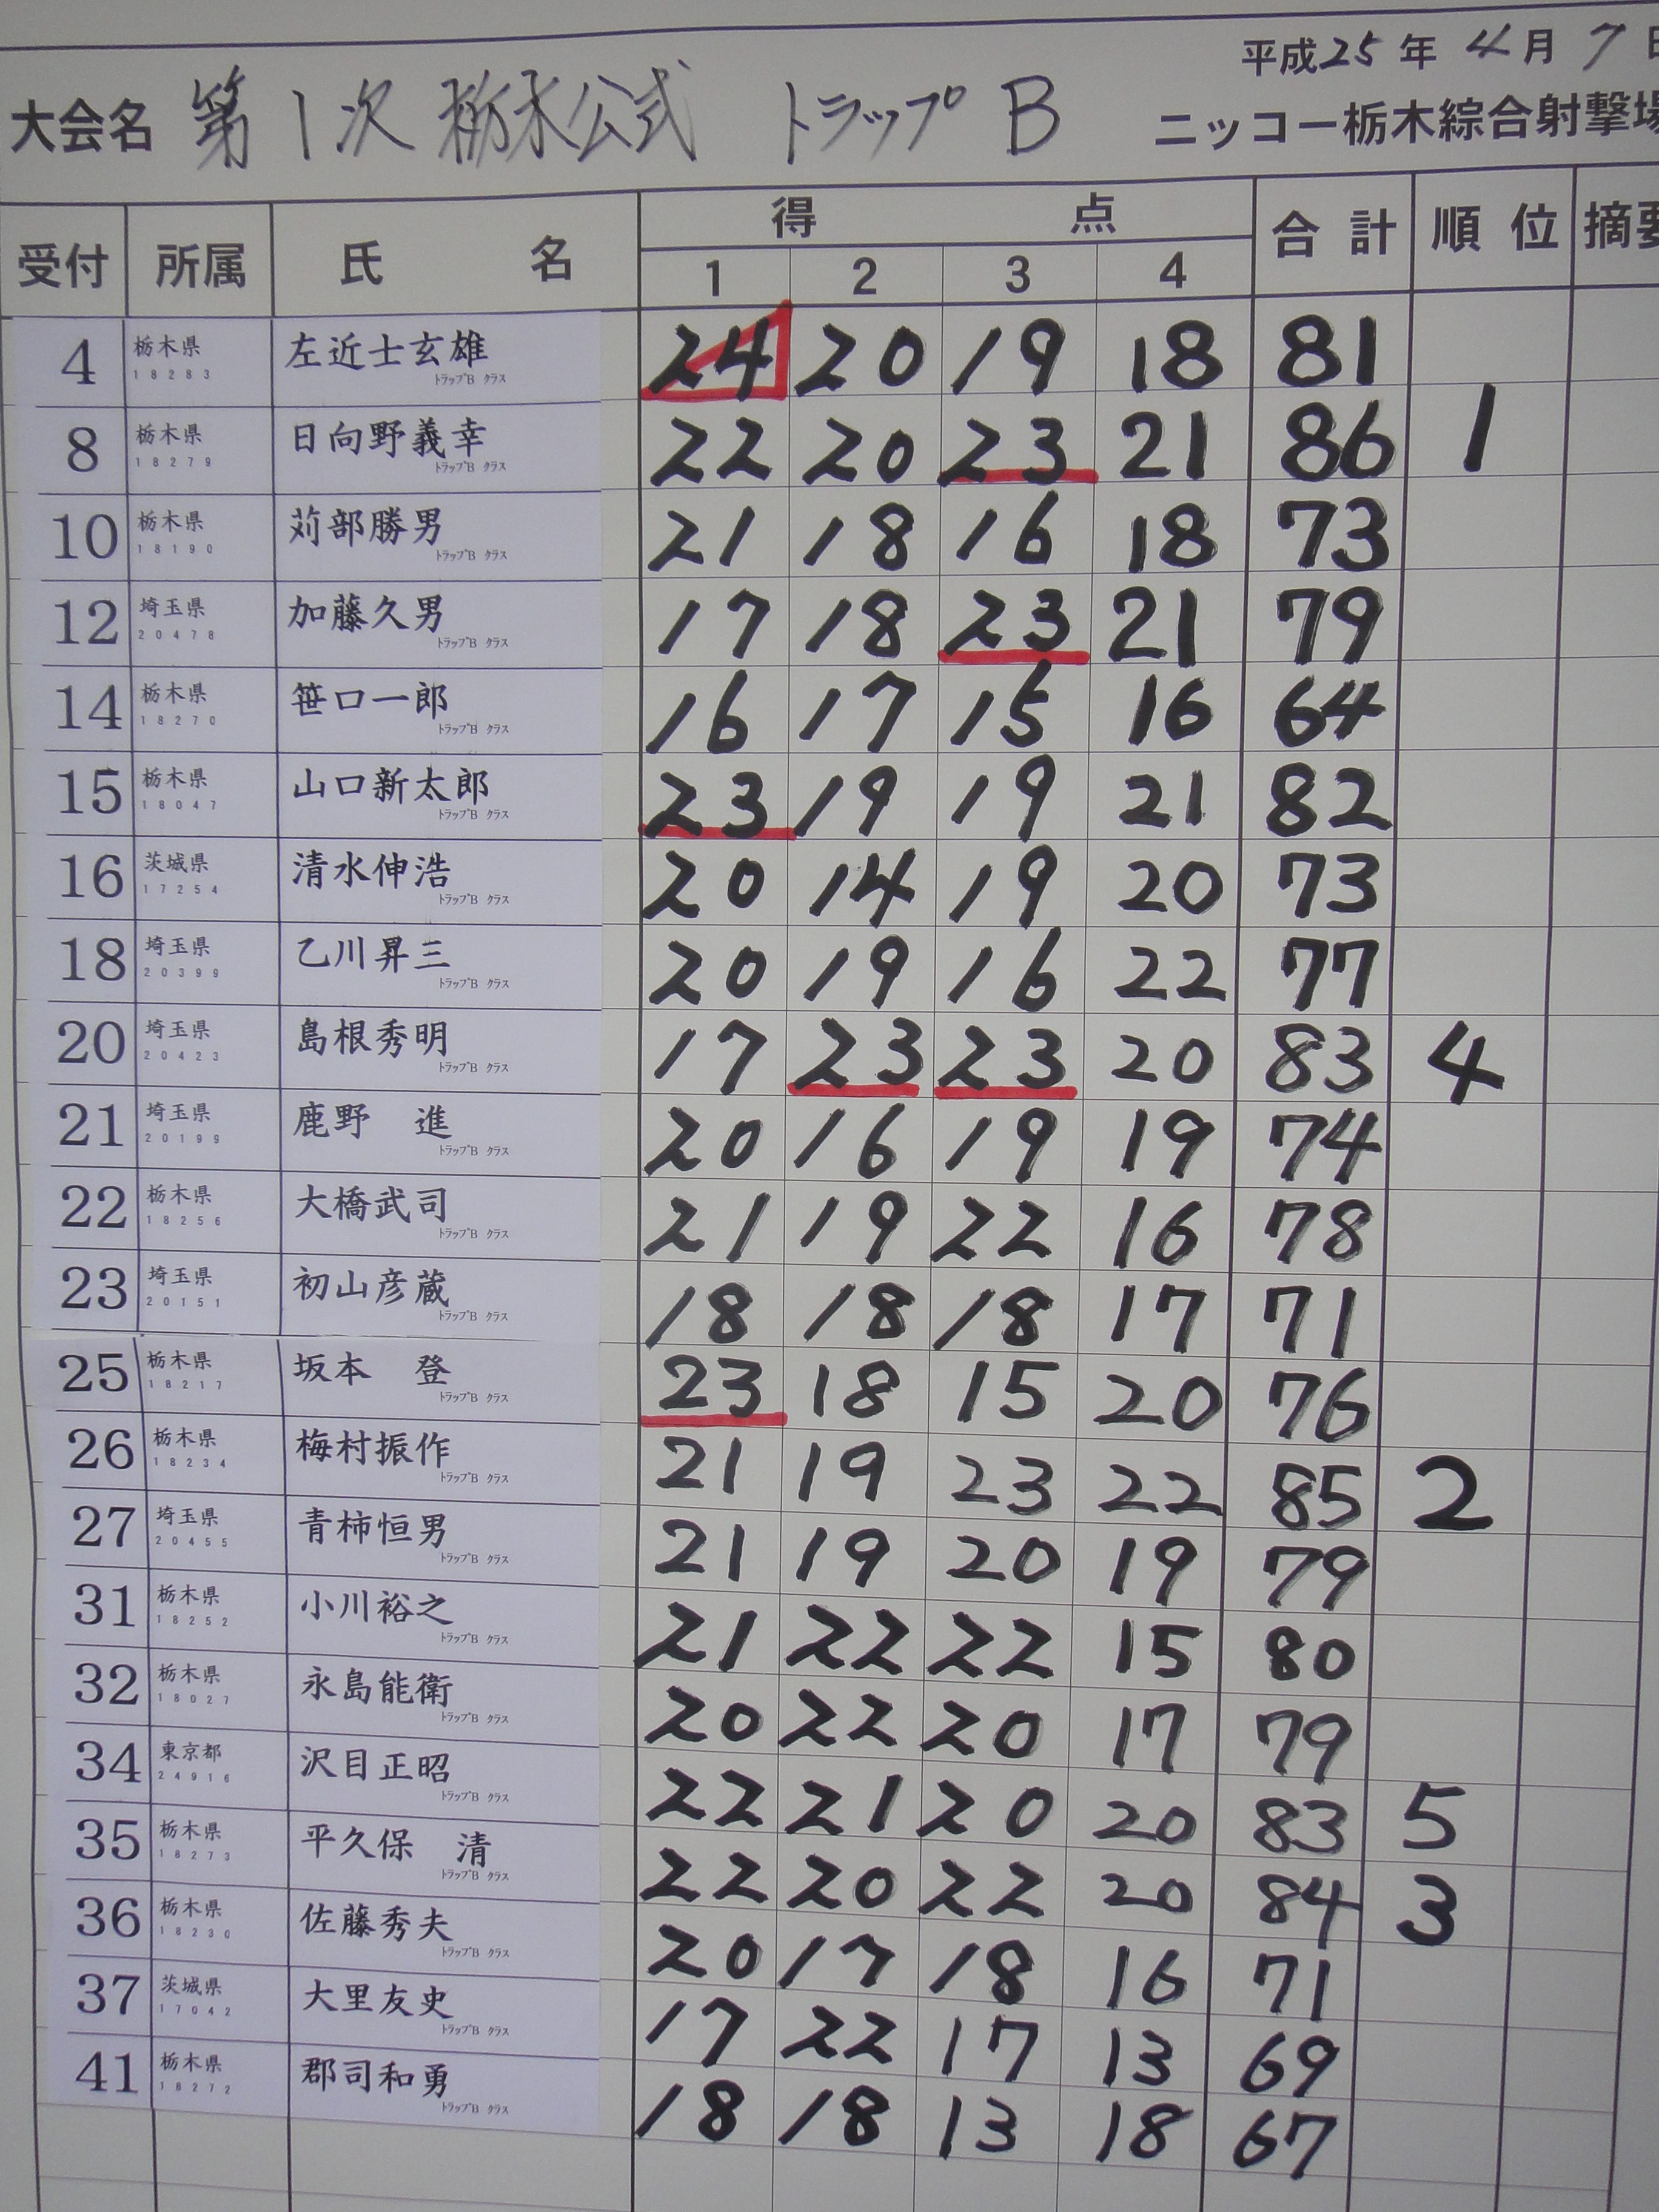 平成25年 4月 7日
大会名 第1次 栃木公式 トラップ B ニッコー栃木綜合射撃場
受付 所属 氏名 得点 合計 順位 摘要
1 2 3 4
4 栃木県 18283 左近士玄雄 トラップB クラス 24 20 19 18 81
8 栃木県 18279 日向野義幸 トラップB クラス 22 20 23 21 86 1
10 栃木県 18190 苅部勝男 トラップB クラス 21 18 16 18 73
12 埼玉県 20478 加藤久男 トラップB クラス 17 18 23 21 79
14 栃木県 18270 笹口一郎 トラップB クラス 16 17 15 16 64
15 栃木県 18047 山口新太郎 トラップB クラス 23 19 19 21 82
16 茨城県 17254 清水伸浩 トラップB クラス 20 14 19 20 73
18 埼玉県 20399 乙川昇三 トラップB クラス 20 19 16 22 77
20 埼玉県 20423 島根秀明 トラップB クラス 17 23 23 20 83 4
21 埼玉県 20199 鹿野 進 トラップB クラス 20 16 19 19 74
22 栃木県 18256 大橋武司 トラップB クラス 21 19 22 16 78
23 埼玉県 20151 初山彦蔵 トラップB クラス 18 18 18 17 71
25 栃木県 18217 坂本 登 トラップB クラス 23 18 15 20 76
26 栃木県 18234 梅村振作 トラップB クラス 21 19 23 22 85 2
27 埼玉県 20455 青柿恒男 トラップB クラス 21 19 20 19 79
31 栃木県 18252 小川裕之 トラップB クラス 21 22 22 15 80
32 栃木県 18027 永島能衛 トラップB クラス 20 22 20 17 79
34 東京都 24916 沢目正昭 トラップB クラス 22 21 20 20 83 5
35 栃木県 18273 平久保 清 トラップB クラス 22 20 22 20 84 3
36 栃木県 18230 佐藤秀夫 トラップB クラス 20 17 18 16 71
37 茨城県 17042 大里友史 トラップB クラス 17 22 17 13 69
41 栃木県 18272 郡司和勇 トラップB クラス 18 18 13 18 67